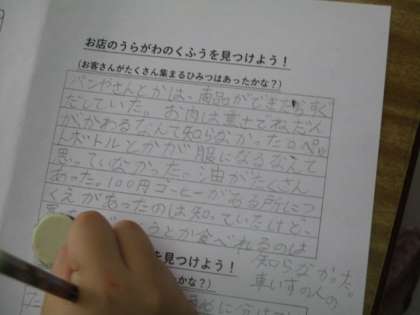 お店のうらがわのくふうを見つけよう!
(お客さんがたくさん集まるひみつはあったかな?)
パンやさんとかは、商品ができたらすぐ
だしていた。お肉は重さでねだん
がかわるなんて知らなかった。ペッ
トボトルとかが服になるなんて
思っていなかった。油がたくさん
あった。100円コーヒーがある所につ
くえがあったのは知っていたけど、
うとか食べれるのは
知らなかった。
車いすの人の
を見つけよう!
かな?)